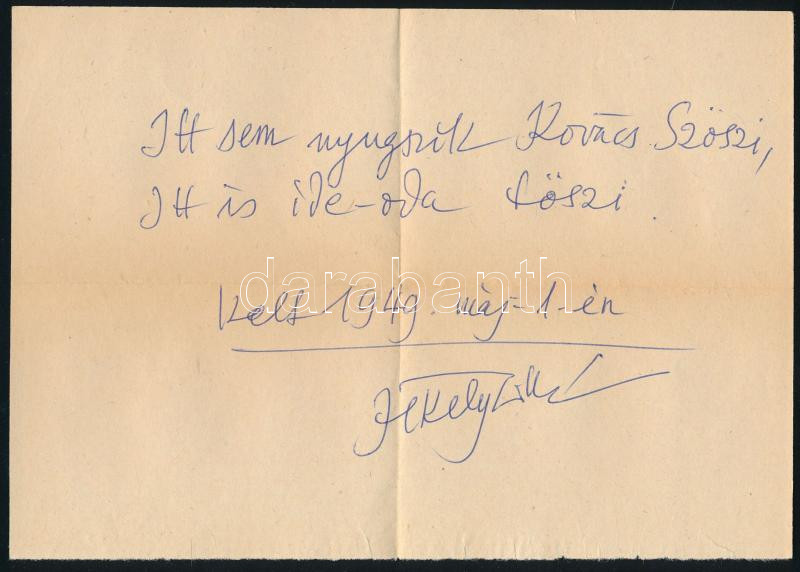 Itt sem nyugszik Kovács Szöszi,
Itt is ide-oda
darabanth
Kelt 1949. máj-1-én